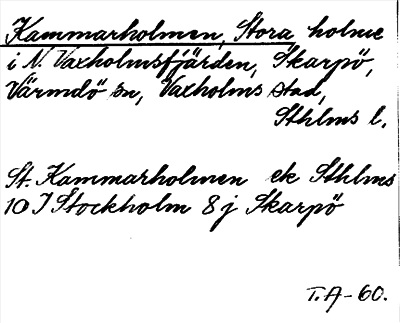 Kammarholmen, Stora holme
i N. Vaxholmsfjärden, Skarpö,
Värmdö sn, Vaxholms stad,
Sthlms l.
St. Kammarholmen ek Sthlms
10 I Stockholm 8 j Skarpö
T. A-60.